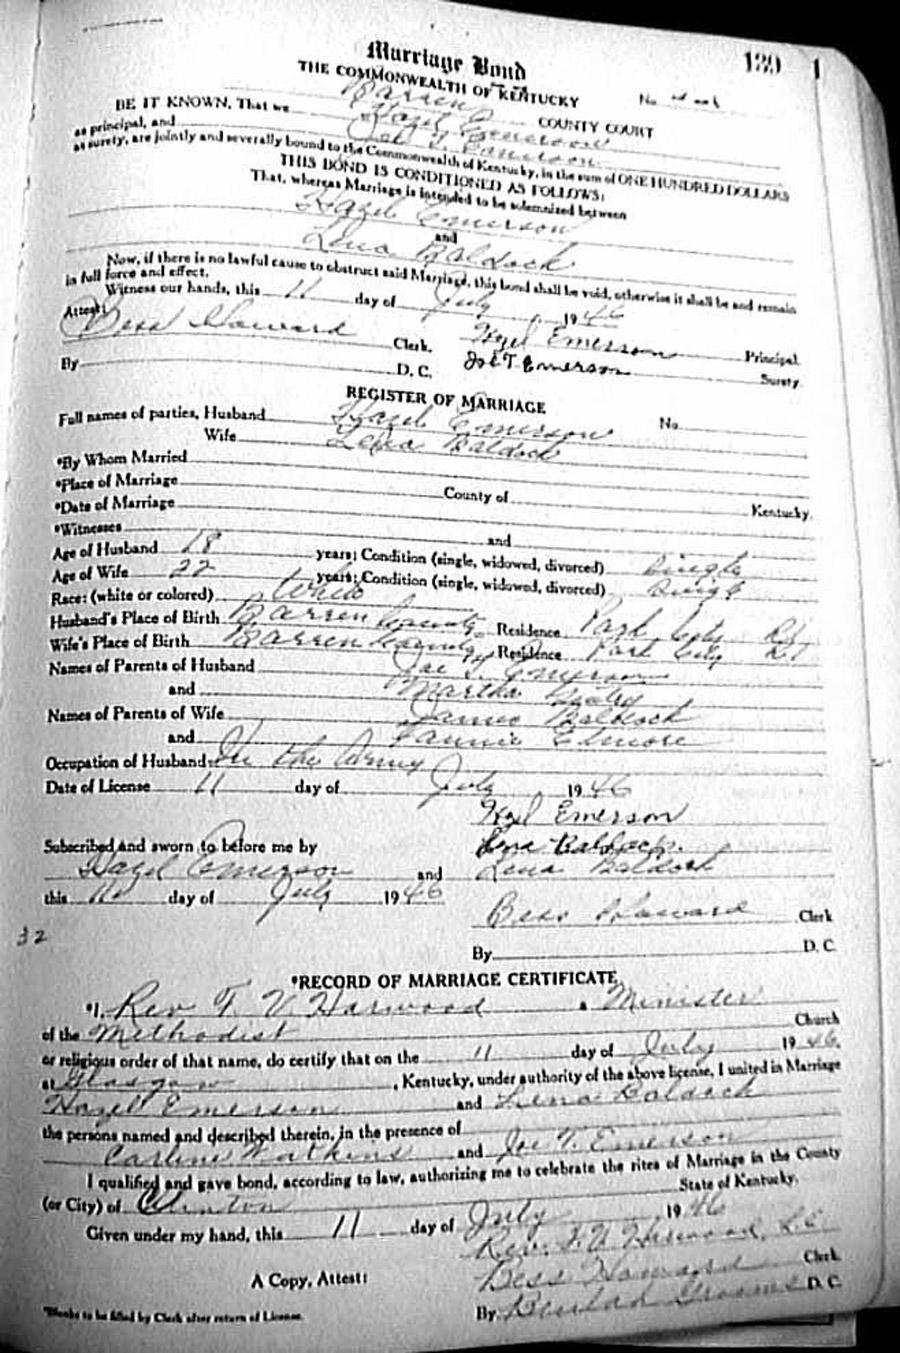 Marriage Bond
THE COMMONWEALTH OF KENTUCKY
No.
Barren COUNTY COURT
BE IT KNOWN, That we Hazel Emerson
as principal, and Joe T. Emerson
as surety, are jointly and severally bound to the Commonwealth of Kentucky, in the sum of ONE HUNDRED DOLLARS
THIS BOND IS CONDITIONED AS FOLLOWS:
That, whereas Marriage is intended to be solemnized between
Hazel Emerson
and
Lena Baldock
Now, if there is no lawful cause to obstruct said Marriage, this bond shall be void, otherwise it shall be and remain
in full force and effect.
Witness our hands, this 11 day of July, 1946
Attest: Bess Howard Clerk. Hazel Emerson Principal.
By D. C. Joe T. Emerson Surety.
REGISTER OF MARRIAGE
Full names of parties, Husband Hazel Emerson No.
Wife Lena Baldock
*By Whom Married
*Place of Marriage County of Kentucky.
*Date of Marriage
*Witnesses and
Age of Husband 18 years; Condition (single, widowed, divorced) Single
Age of Wife 22 years; Condition (single, widowed, divorced) Single
Race: (white or colored) White
Husband's Place of Birth Barren County Residence Park City R1
Wife's Place of Birth Barren County Residence Park City R1
Names of Parents of Husband Joe T. Emerson
and Martha
Names of Parents of Wife Baldock
and Fannie Elmore
Occupation of Husband In the Army
Date of License 11 day of July 1946
Hazel Emerson
Lena Baldock.
Subscribed and sworn to before me by
Hazel Emerson and Lena Baldock
this 11 day of July 1946
Bess Howard Clerk
32
By D. C.
*RECORD OF MARRIAGE CERTIFICATE
*I, Rev F. V. Harwood, Minister
of the Methodist Church
or religious order of that name, do certify that on the 11 day of July 1946,
at Glasgow, Kentucky, under authority of the above license, I united in Marriage
Hazel Emerson and Lena Baldock
the persons named and described therein, in the presence of
Carline Watkins and Joe T. Emerson
I qualified and gave bond, according to law, authorizing me to celebrate the rites of Marriage in the County
(or City) of Clinton State of Kentucky.
Given under my hand, this 11 day of July 1946
Rev. F. V. Harwood,
A Copy, Attest: Bess Howard Clerk
By Beulah Grooms D. C.
*Blanks to be filled by Clerk after return of License.